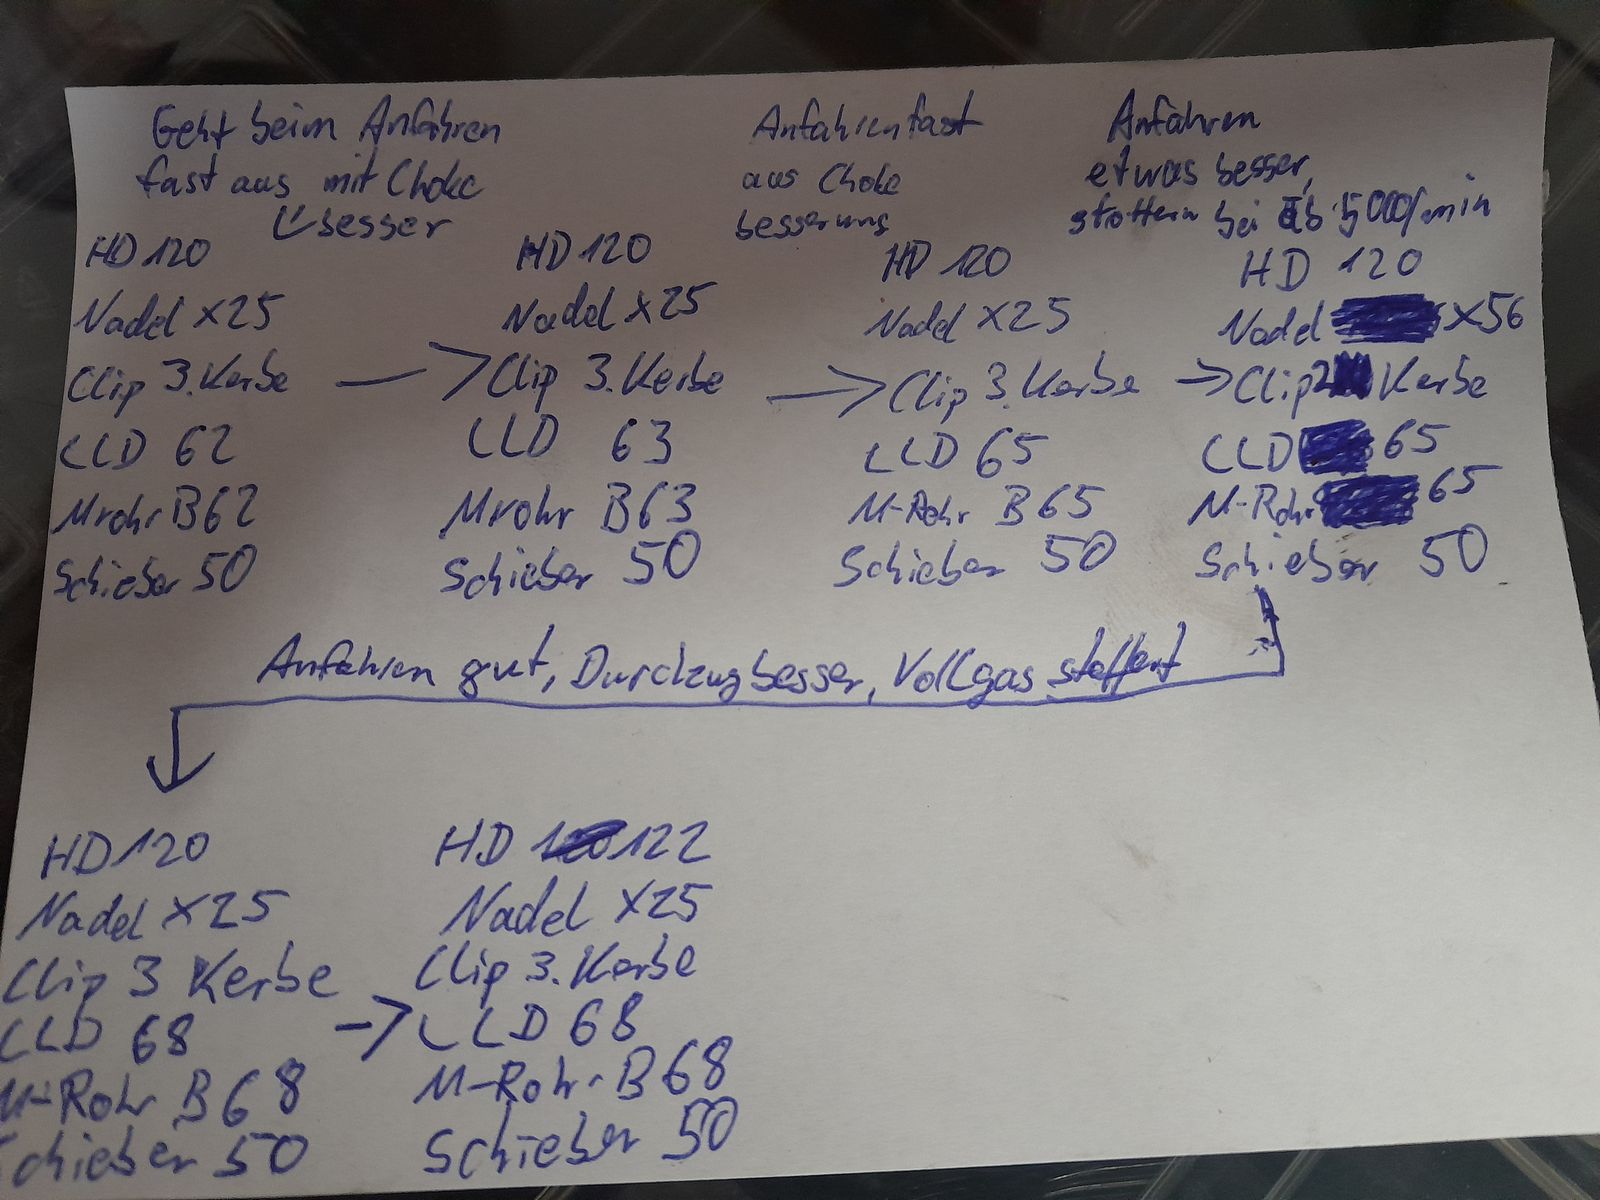 Geht beim Anfahren
fast aus mit Choke
besser
HD 120
Nadel X25
Clip 3. Kerbe
LLD 62
Mrohr B62
Schieber 50
HD 120
Nadel X25
Clip 3. Kerbe
LLD 63
Mrohr B63
Schieber 50
Anfahren fast
aus Choke
besserung
HD 120
Nadel X25
Clip 3. Kerbe
LLD 65
M-Rohr B65
Schieber 50
Anfahren
etwas besser,
stottern bei ab 5000/min
HD 120
Nadel X56
Clip 2 Kerbe
LLD 65
M-Rohr 65
Schieber 50
Anfahren gut, Durchzug besser, Vollgas stottert
HD 120
Nadel X25
Clip 3 Kerbe
LLD 68
M-Rohr B68
Schieber 50
HD 122
Nadel X25
Clip 3. Kerbe
LLD 68
M-Rohr B68
Schieber 50